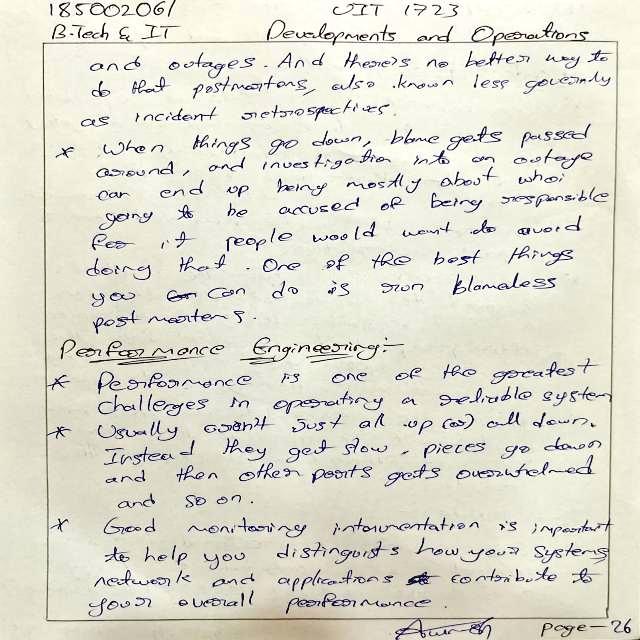 185002061 UIT 1723
B.Tech & IT Developments and Operations
and outages. And there's no better way to
do that postmortons, also known less governly
as incident retrospectives.
* When things go down, blame gets passed
around, and investigation into an outage
can end up being mostly about who
going to be accused of being responsible
for it people would want do avoid
doing that. One of the best things
you can do is run blameless
post mortens.
Performance Engineering:-
* Performance is one of the greatest
challenges in operating a reliable system
* Usually aren't just all up (or) all down.
Instead they get slow, pieces go down
and then other parts gets overwhelmed
and so on.
* Good monitoring intorumentation is important
to help you distinguists how your systems
network and applications contribute to
your overall performance.
page-26